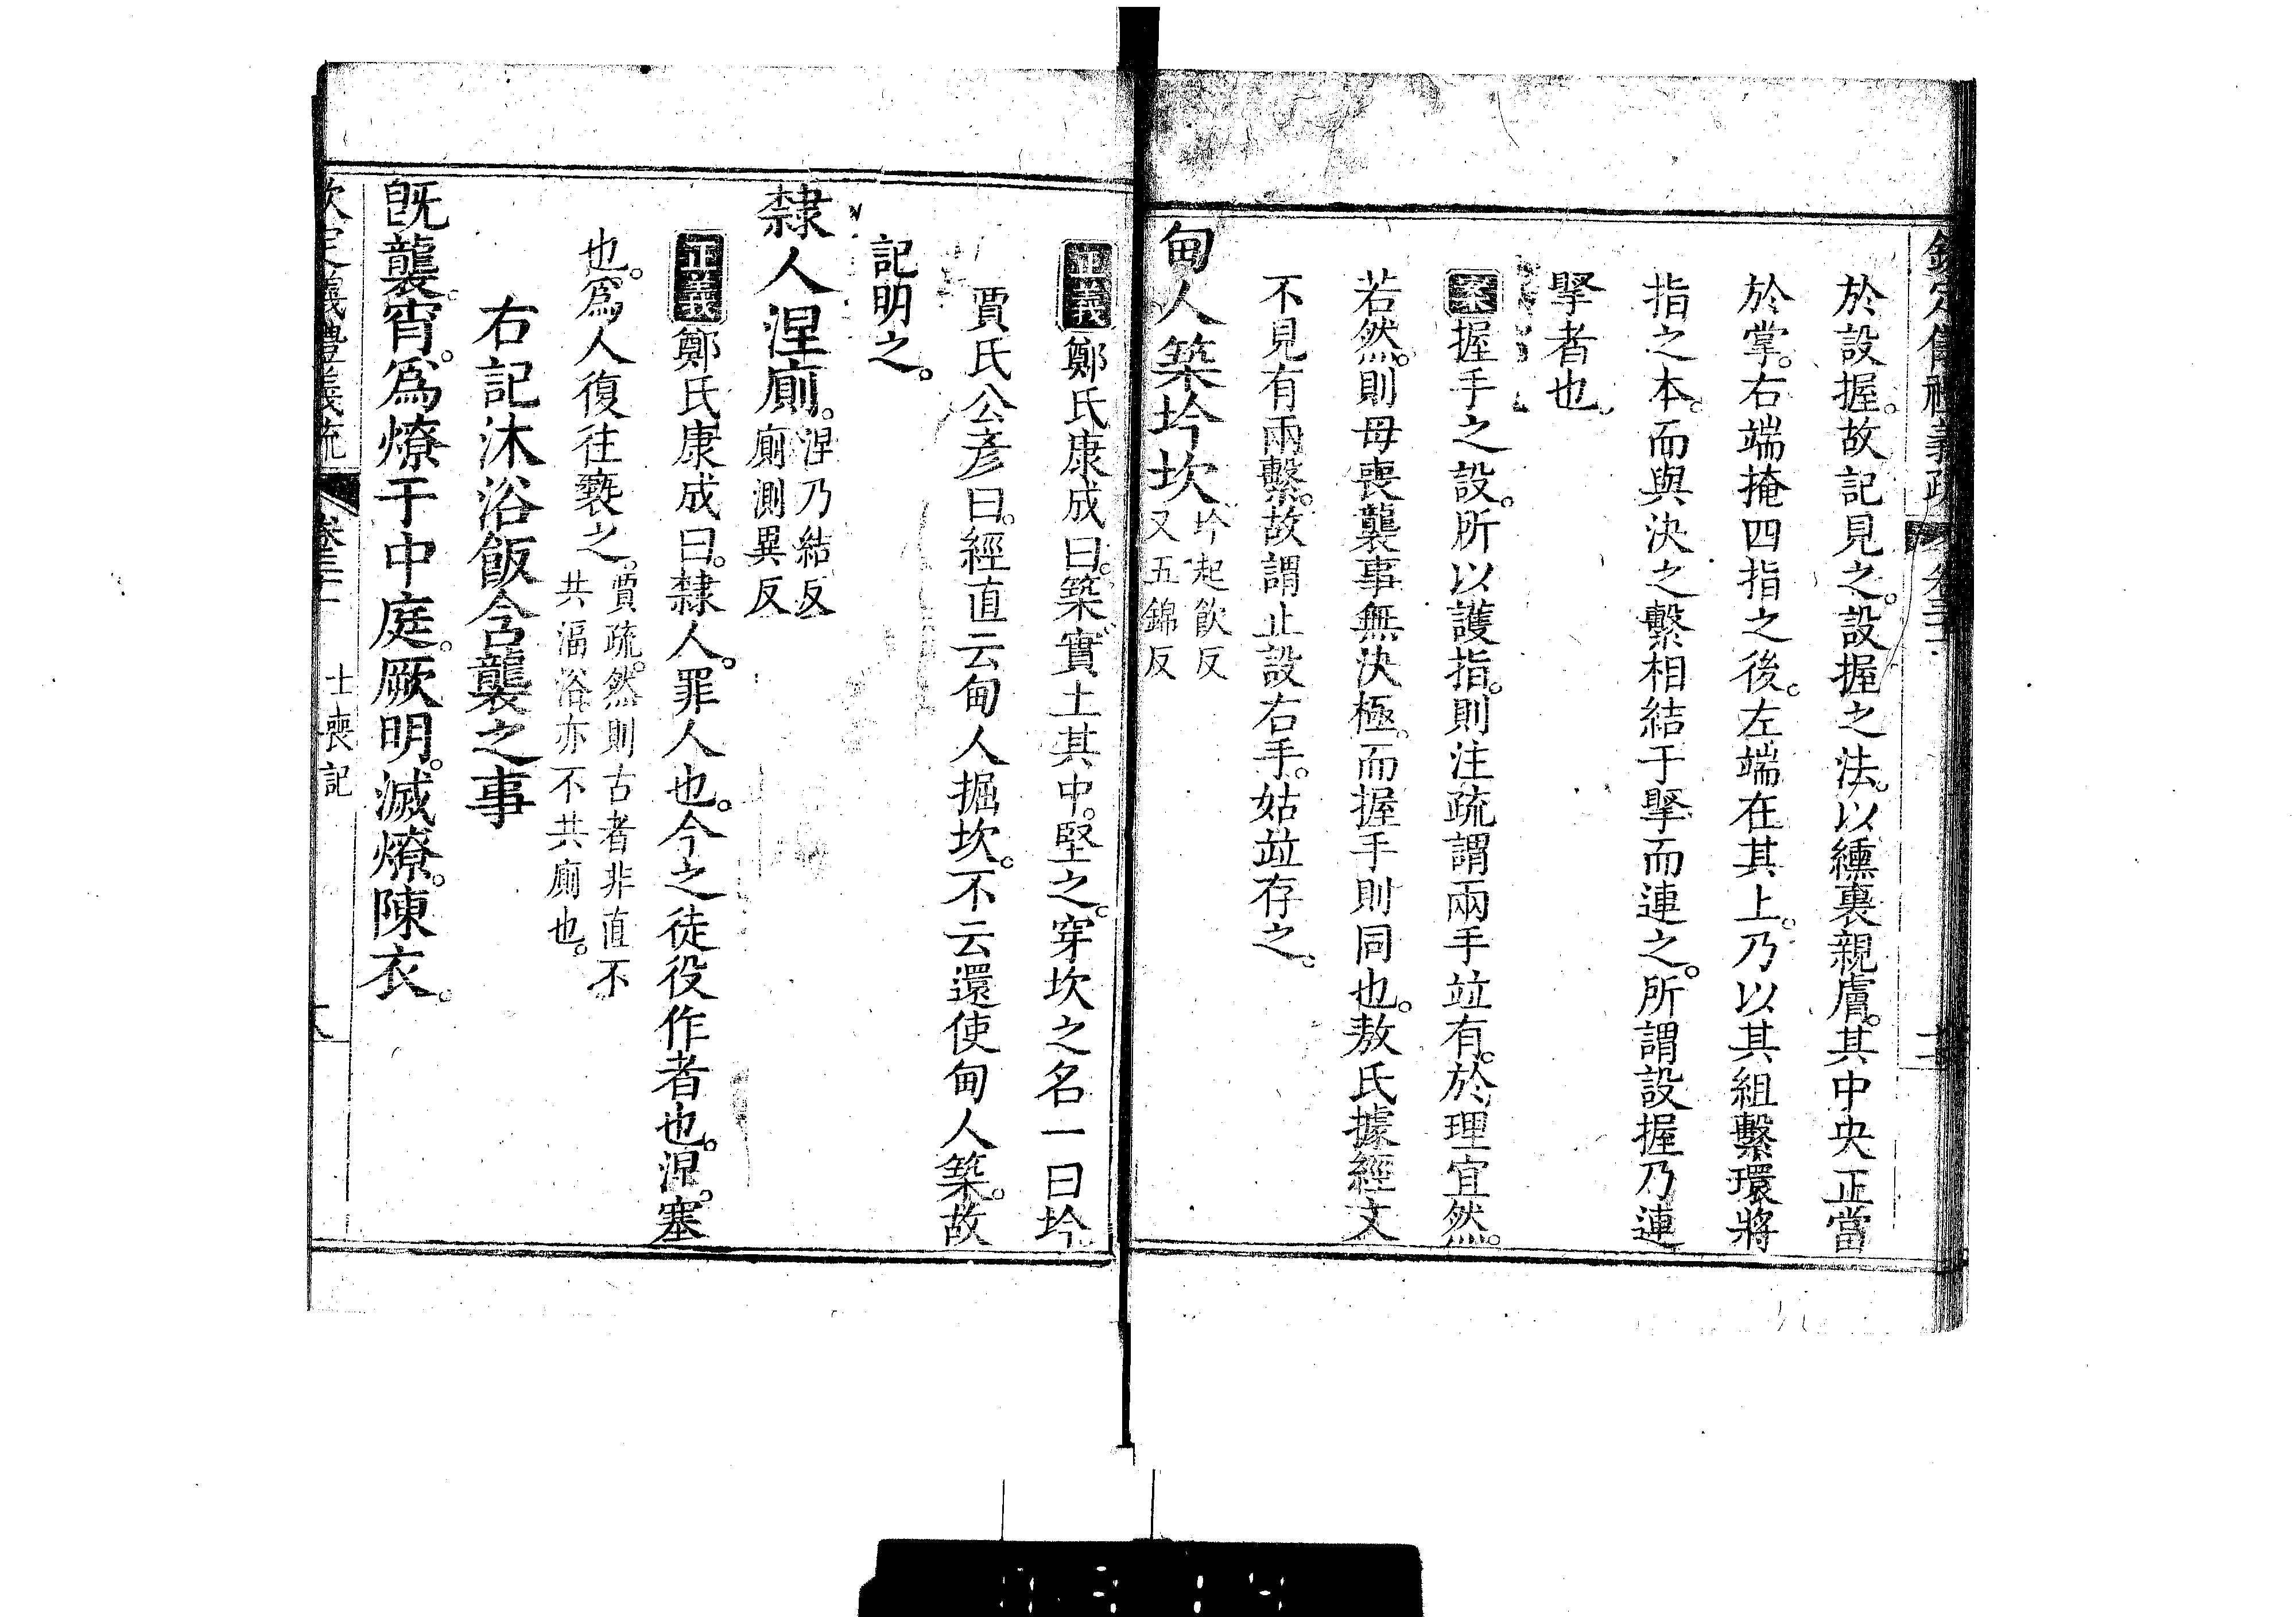 於設握。故記見之。設握之法。以纁裏親膚。其中央正當
於掌。右端掩四指之後。左端在其上。乃以其組繫環將
指之本。而與決之繫相結于掔而連之。所謂設握乃連
掔者也。
案握手之設。所以護指。則注疏謂兩手竝有。於理宜然。
若然。則母喪襲事無決極。而握手則同也。敖氏據經文
不見有兩繫。故謂止設右手。姑竝存之。
甸人築坅坎。坅起飲反
又五錦反
正義鄭氏康成曰。築。實土其中。堅之。穿坎之名一曰坅。
賈氏公彥曰。經直云甸人掘坎。不云還使甸人築。故
記明之。
隸人涅廁。涅乃結反
廁測異反
正義鄭氏康成曰。隸人。罪人也。今之徒役作者也。涅。塞
也。爲人復往褻之。賈疏。然則古者非直不
共湢浴。亦不共廁也。
右記沐浴飯含襲之事
旣襲。宵。爲燎于中庭。厥明。滅燎。陳衣。
欽定儀禮義疏 卷三十 士喪記